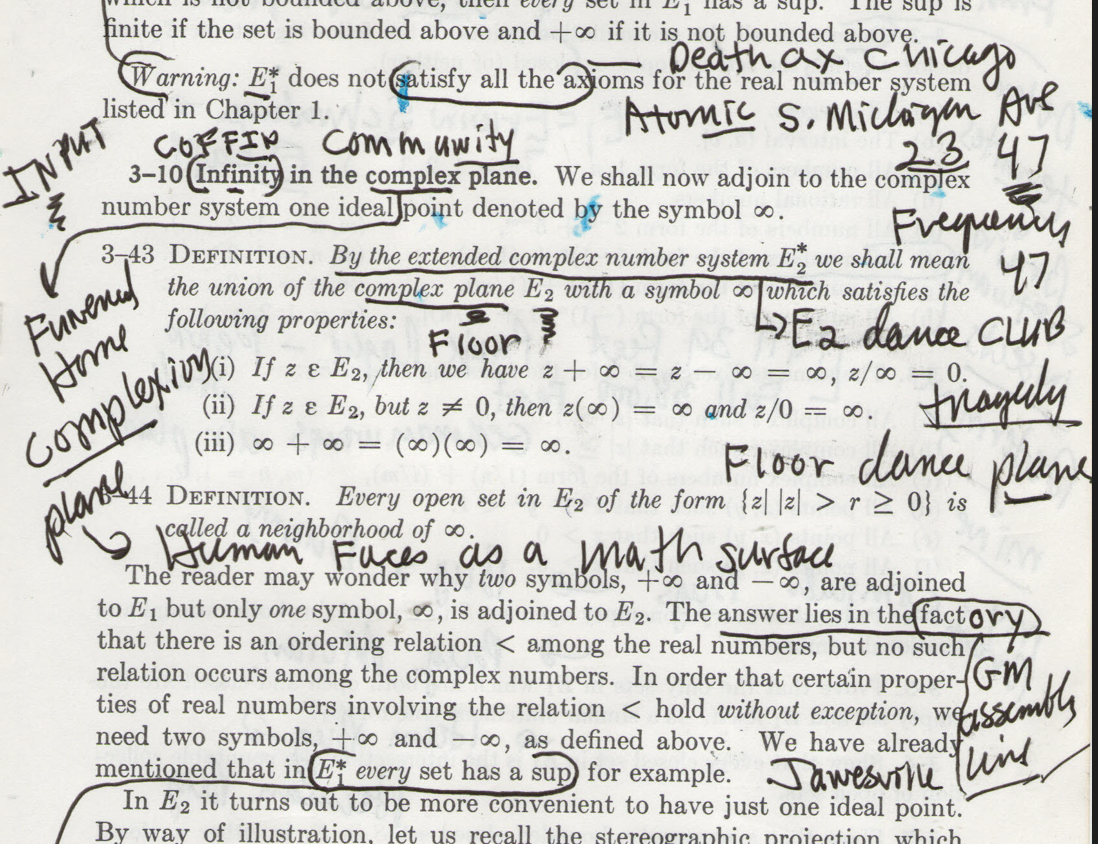 which is not bounded above, then every set in E₁* has a sup. The sup is
finite if the set is bounded above and +∞ if it is not bounded above.
Death ax Chicago
Warning: E₁* does not satisfy all the axioms for the real number system
listed in Chapter 1.
Atomic S. Michigan Ave
INPUT
COFFIN Community
23 47
3–10 Infinity in the complex plane. We shall now adjoin to the complex
number system one ideal point denoted by the symbol ∞.
Frequency
47
3–43 DEFINITION. By the extended complex number system E₂* we shall mean
the union of the complex plane E₂ with a symbol ∞ which satisfies the
following properties:
Floor
E2 dance CLUB
tragedy
Funeral
Home
(i) If z ε E₂, then we have z + ∞ = z − ∞ = ∞, z/∞ = 0.
(ii) If z ε E₂, but z ≠ 0, then z(∞) = ∞ and z/0 = ∞.
(iii) ∞ + ∞ = (∞)(∞) = ∞.
Complexion
plane
Floor dance plane
3–44 DEFINITION. Every open set in E₂ of the form {z| |z| > r ≥ 0} is
called a neighborhood of ∞.
Human Faces as a math surface
The reader may wonder why two symbols, +∞ and −∞, are adjoined
to E₁ but only one symbol, ∞, is adjoined to E₂. The answer lies in the factory
that there is an ordering relation < among the real numbers, but no such
relation occurs among the complex numbers. In order that certain proper-
ties of real numbers involving the relation < hold without exception, we
need two symbols, +∞ and −∞, as defined above. We have already
mentioned that in E₁* every set has a sup, for example.
GM
assembly
line
Janesville
In E₂ it turns out to be more convenient to have just one ideal point.
By way of illustration, let us recall the stereographic projection which